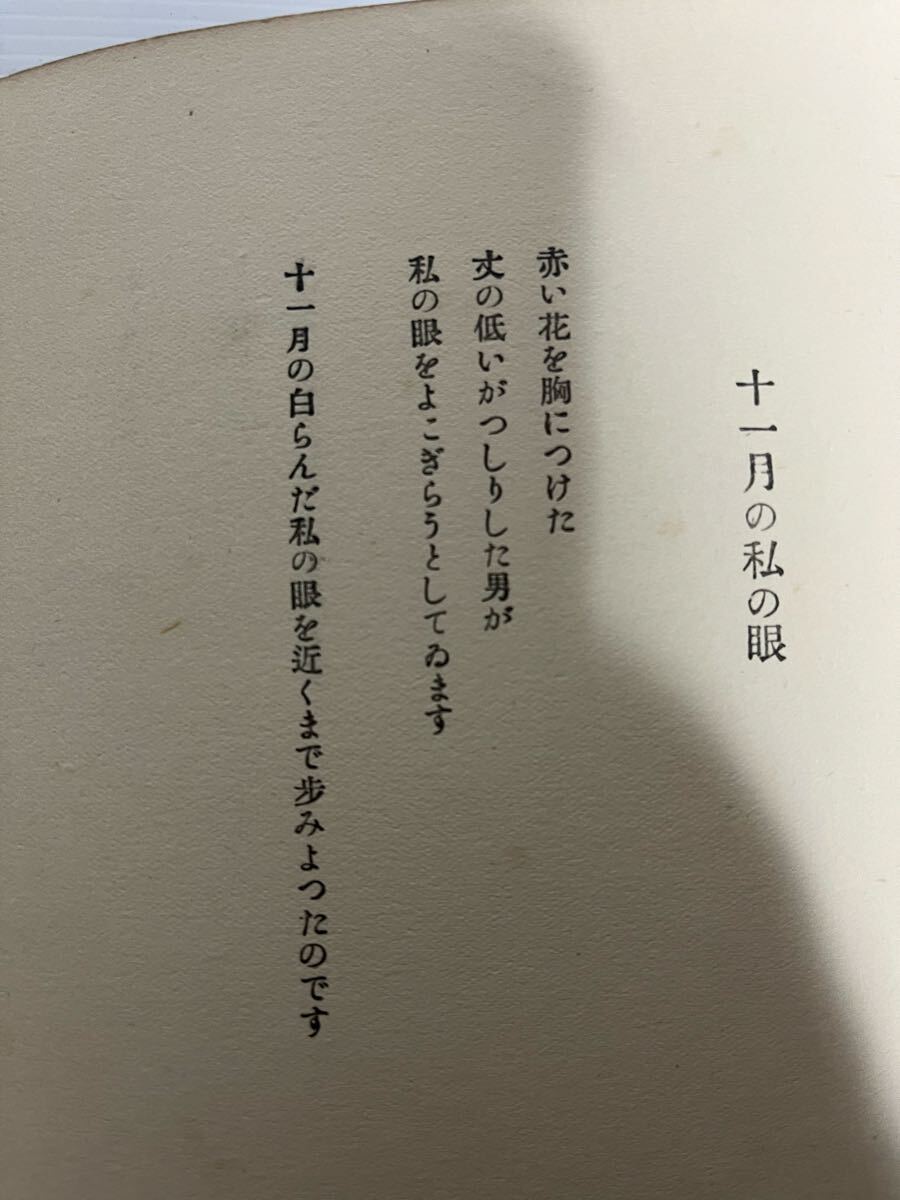 十一月の私の眼
赤い花を胸につけた
丈の低いがつしりした男が
私の眼をよこぎらうとしてゐます
十一月の白らんだ私の眼を近くまで歩みよつたのです